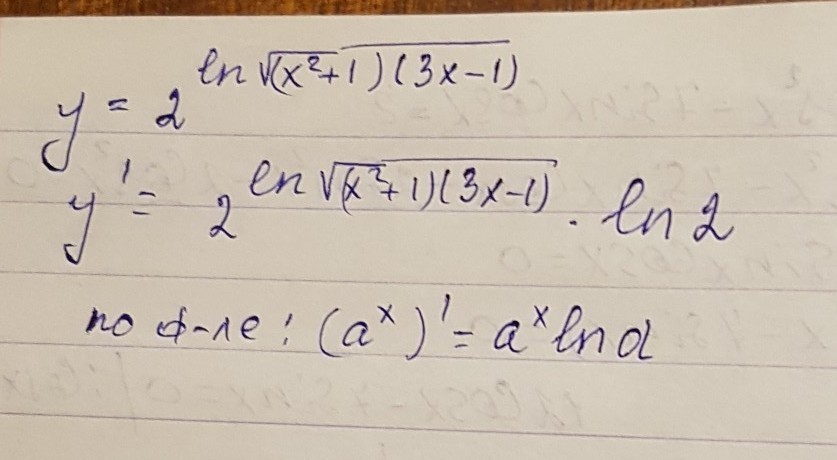 y = 2^{ln√((x²+1)(3x-1))}
y' = 2^{ln√((x²+1)(3x-1))} · ln 2
по ф-ле: (a^x)' = a^x ln a